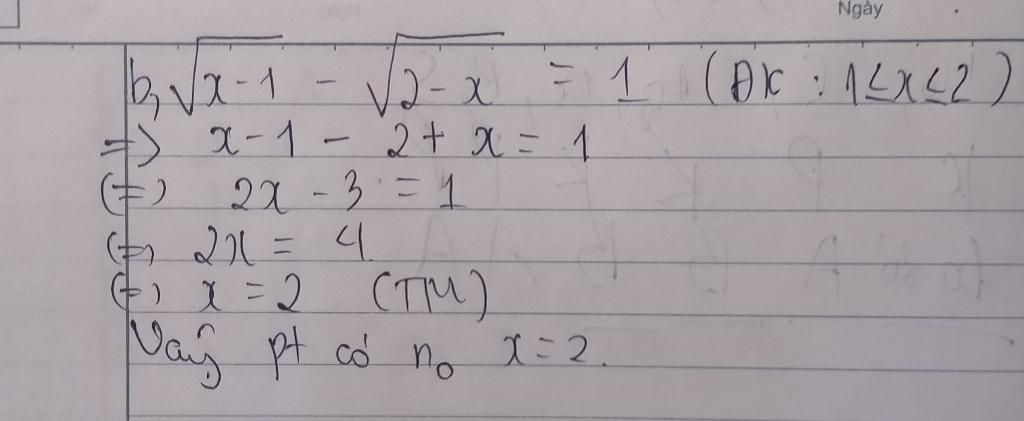 Ngày
b, √x-1 - √2-x = 1 (ĐK : 1≤x≤2)
=> x-1 - 2+ x = 1
(=) 2x - 3 = 1
(=) 2x = 4
(=) x = 2 (TM)
Vậy pt có n₀ x = 2.